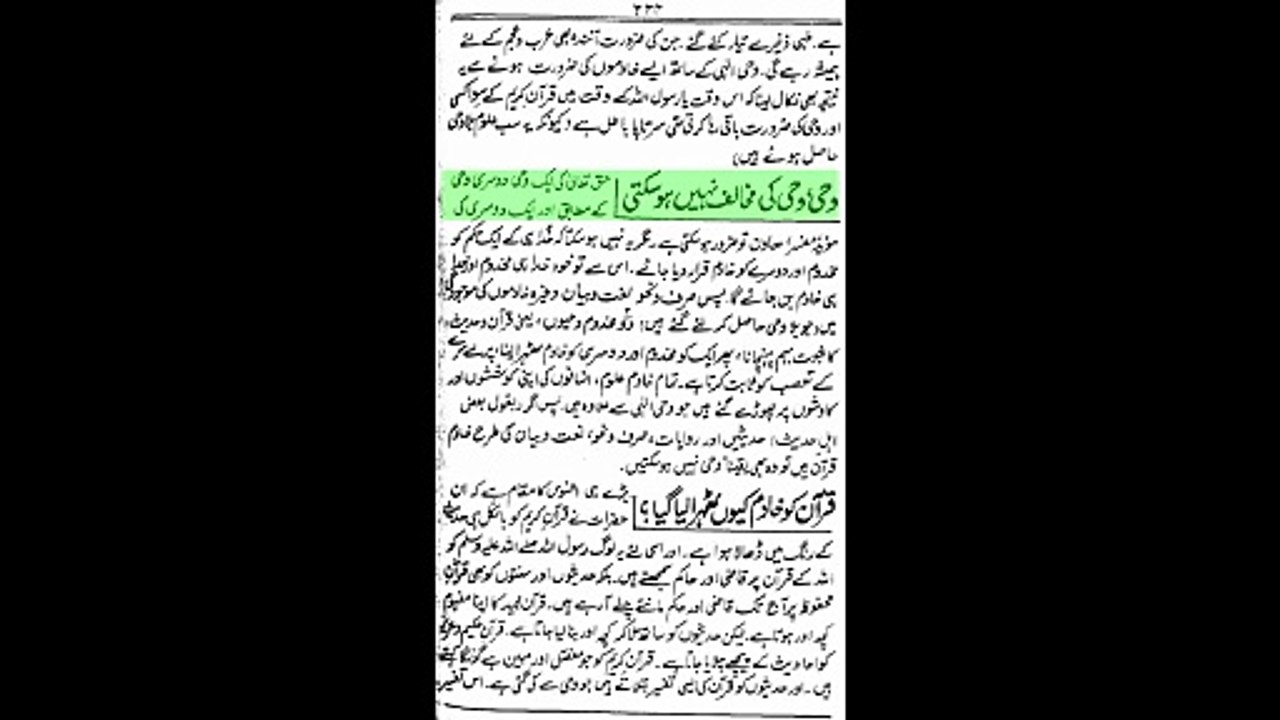 ۲۲۲
ہے۔ طبی ذخیرے تیار کئے گئے۔ جن کی ضرورت آئندہ بھی عرب و عجم کے لئے
ہمیشہ رہے گی۔ وحی الٰہی کے ساتھ ایسے خادموں کی ضرورت ہونے سے یہ
نتیجہ بھی نکال لینا کہ اس وقت یا رسول اللہ کے وقت میں قرآن کریم کے سوا کسی
اور وحی کی ضرورت باقی رہا کرتی تھی سرتاپا باطل ہے (کیونکہ یہ سب علوم بلا وحی
حاصل ہوئے ہیں)
وحی، وحی کی مخالف نہیں ہو سکتی
حق تعالیٰ کی ایک وحی دوسری وحی
کے مطابق اور ایک دوسری کی
مؤید، مفسر، معاون تو ضرور ہو سکتی ہے مگر یہ نہیں ہو سکتا کہ خدا ہی کے ایک حکم کو
مخدوم اور دوسرے کو خادم قرار دیا جائے۔ اس سے تو خود خدا ہی مخدوم اور
ہی خادم بن جائے گا۔ پس صرف و نحو لغت و بیان وغیرہ خادموں کی موجودگی
میں (جو بلا وحی حاصل کر لئے گئے ہیں) دو مخدوم وحیوں، یعنی قرآن و حدیث
کا ثبوت بہم پہنچانا، پھر ایک کو مخدوم اور دوسری کو خادم ٹھہرا لینا
کے تعصب کو ثابت کرتا ہے۔ تمام خادم علوم، انسانوں کی اپنی کوششوں اور
کاوشوں پر چھوڑے گئے ہیں جو وحی الٰہی سے علاوہ ہیں پس اگر (بقول بعض
اہل حدیث) حدیثیں اور روایات، صرف و نحو، لغت و بیان کی طرح خادم
قرآن ہیں تو وہ بھی یقیناً وحی نہیں ہو سکتیں۔
قرآن کو خادم کیوں ٹھہرا لیا گیا؟
بڑے ہی افسوس کا مقام ہے کہ ان
حضرات نے قرآن کریم کو بالکل ہی حدیث
کے رنگ میں ڈھالا ہوا ہے۔ اور اسی لئے یہ لوگ رسول اللہ صلے اللہ علیہ وسلم کو
اللہ کے قرآن پر قاضی اور حاکم سمجھتے ہیں۔ بلکہ حدیثوں اور سنتوں کو بھی قرآن
محفوظ پر آج تک قاضی اور حکم مانتے چلے آ رہے ہیں۔ قرآن مجید کا اپنا مفہوم
کچھ اور ہوتا ہے۔ لیکن حدیثوں کو ساتھ ملا کر کچھ اور بنا لیا جاتا ہے۔ قرآن حکیم
کو احادیث کے پیچھے چلایا جاتا ہے۔ قرآن کریم کو جو مفصل اور مبین ہے گونگا کہتے
ہیں۔ اور حدیثوں کو قرآن کی ایسی تفسیر بتلاتے ہیں جو وحی سے کی گئی ہے۔ اس تفسیر